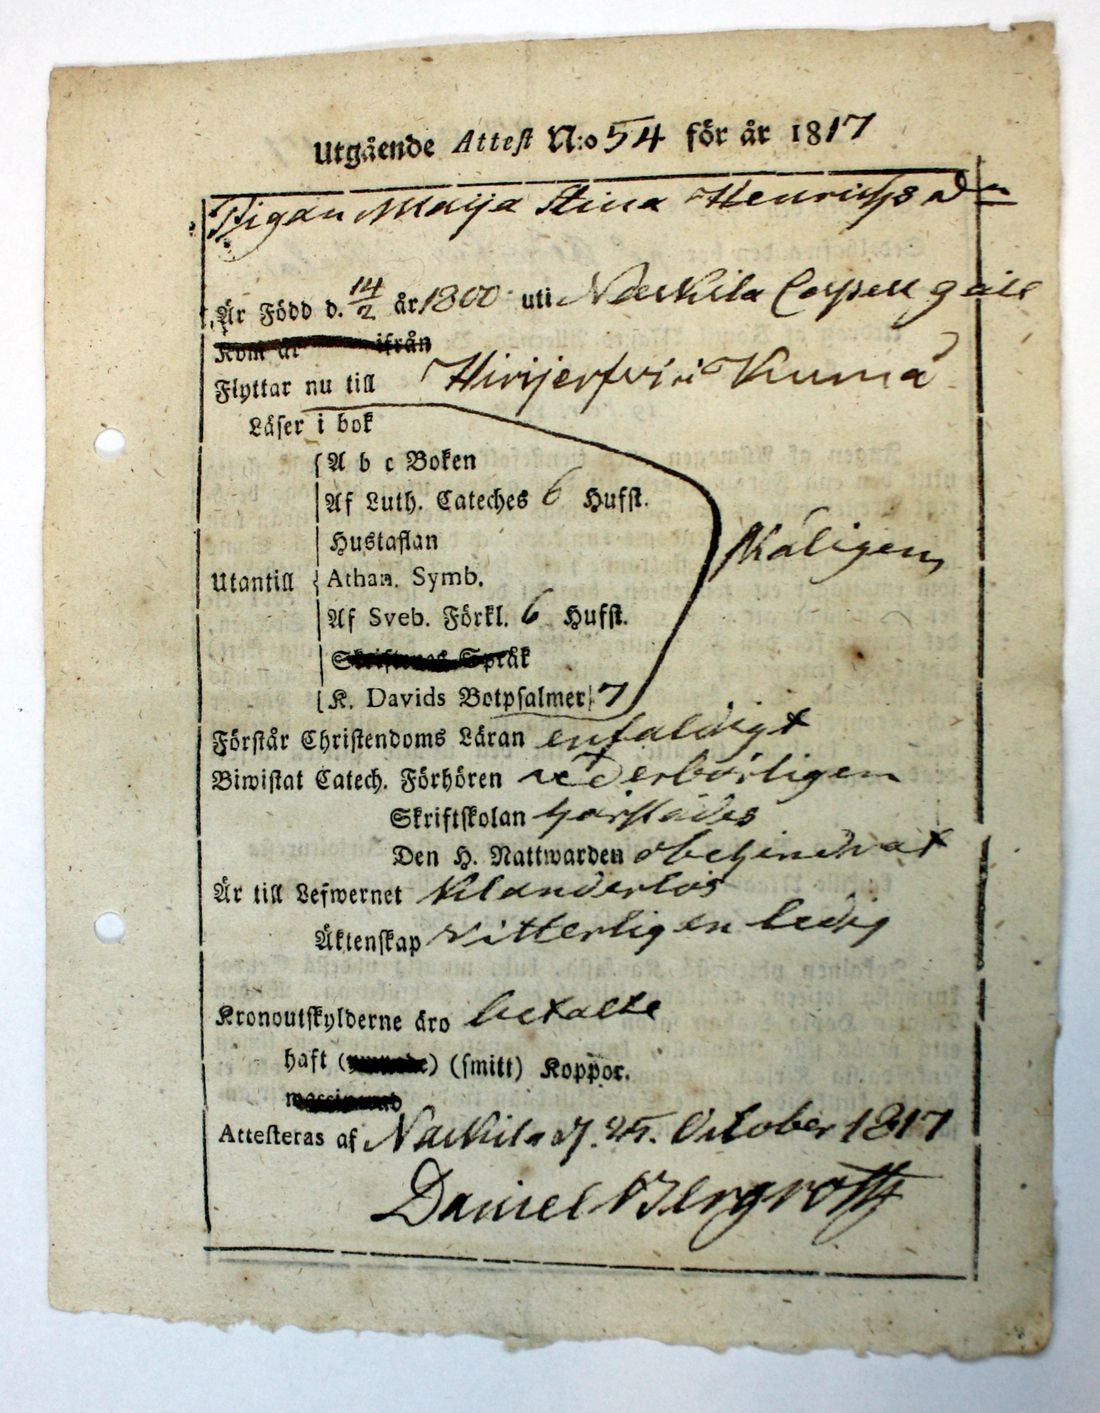 Utgående Attest N:o 54 för år 1817
Pigan Maija Stina Henrichsd:r
Är Född d. 14/2 år 1800 uti Nackila Capell gäll
Kom år ifrån
Flyttar nu till Hirijerfvi i Kumå
Läser i bok
A b c Boken
Af Luth. Cateches 6 Hufst.
Hustaflan
Utantill Athan. Symb.
Af Sveb. Förkl. 6 Hufst.
Skriftenes Språk
K. Davids Botpsalmer 7
Måligen
Förstår Christendoms Läran enfaldigt
Biwistat Catech. Förhören vederbörligen
Skriftskolan härstädes
Den H. Nattwarden obehindrat
Är till Lefwernet Klanderlös
Äktenskap vitterligen ledig
Kronoutskylderne äro betalte
haft () (smitt) Koppor.
Attesteras af Nackila d. 25. October 1817
Daniel Bergroth